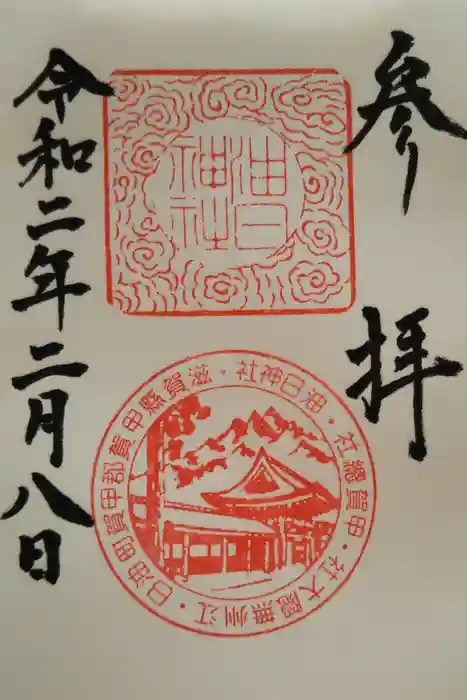 参拝
油日
神社
令和二年二月八日
油日神社・滋賀縣甲賀郡甲賀町油日・江州無隠大社・甲賀總社